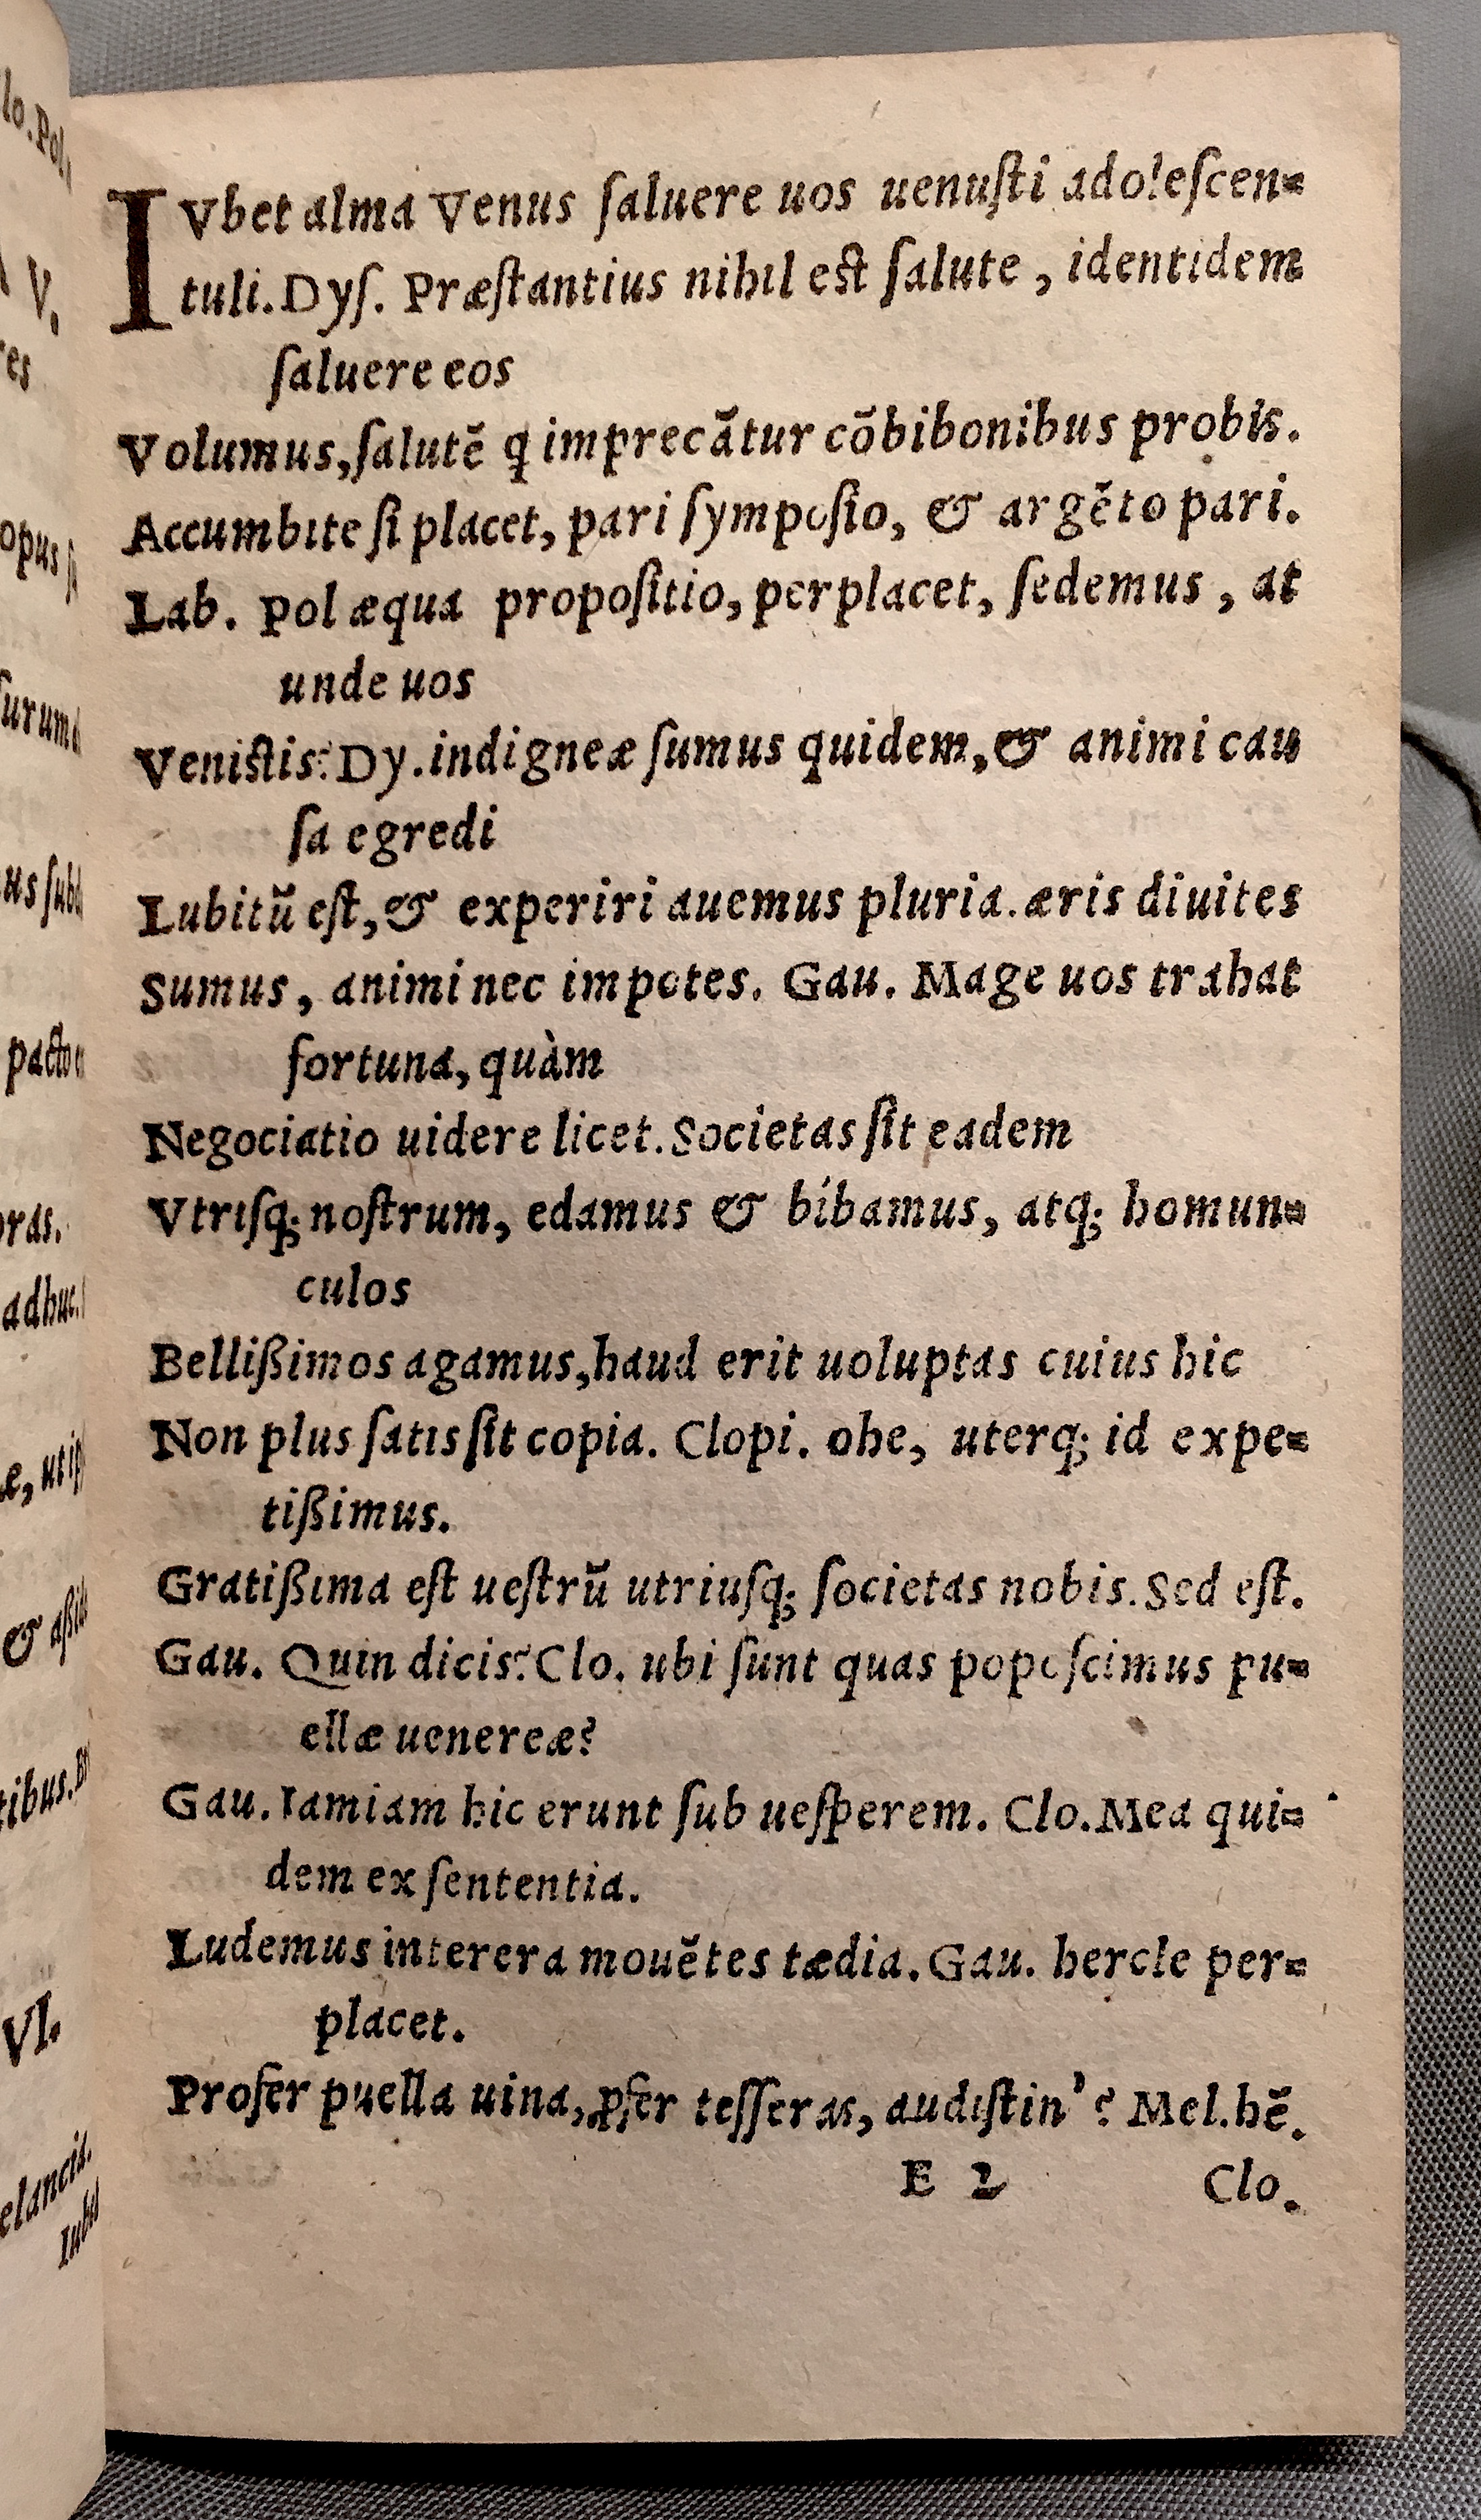 IVbet alma Venus ſaluere uos uenuſti adoleſcen=
tuli. Dyſ. Præſtantius nihil eſt ſalute, identidem
ſaluere eos
Volumus, ſalutẽ q imprecãtur cõbibonibus probis.
Accumbite ſi placet, pari ſympoſio, & argẽto pari.
Lab. Pol æqua propoſitio, perplacet, ſedemus, at
unde uos
Veniſtis? Dy. indigneæ ſumus quidem, & animi cau
ſa egredi
Lubitũ eſt, & experiri auemus pluria. æris diuites
Sumus, animi nec impotes. Gau. Mage uos trahat
fortuna, quàm
Negociatio uidere licet. Societas ſit eadem
Vtriſq; noſtrum, edamus & bibamus, atq; homun=
culos
Bellißimos agamus, haud erit uoluptas cuius hic
Non plus ſatis ſit copia. Clopi. ohe, uterq; id expe=
tißimus.
Gratißima eſt ueſtrũ utriuſq; ſocietas nobis. Sed eſt.
Gau. Quin dicis? Clo. ubi ſunt quas popoſcimus pu=
ellæ uenereæ?
Gau. Iamiam hic erunt ſub ueſperem. Clo. Mea qui=
dem ex ſententia.
Ludemus interera mouẽtes tædia. Gau. hercle per=
placet.
Profer puella uina, ꝓfer teſſeras, audiſtin'? Mel. hẽ.
E 2 Clo.
lo. Pol.
V.
res
opus
us ſub
pacto
oras.
adhuc.
&
tibus.
VI.
elancia.